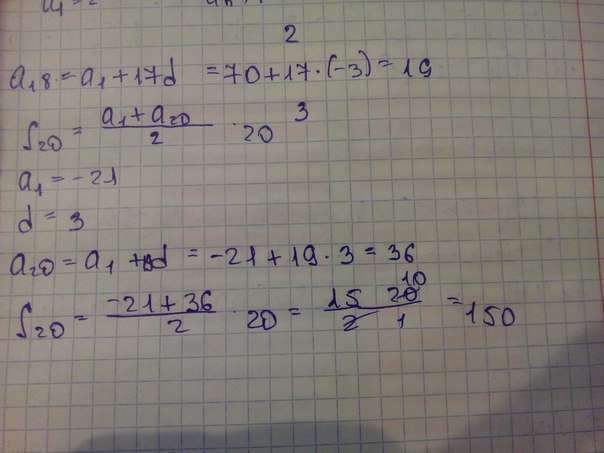 2
a₁₈ = a₁ + 17d = 70 + 17 · (-3) = 19
3
S₂₀ = (a₁ + a₂₀)/2 · 20
a₁ = -21
d = 3
a₂₀ = a₁ + d = -21 + 19 · 3 = 36
S₂₀ = (-21 + 36)/2 · 20 = (15 20 10)/(2 1) = 150